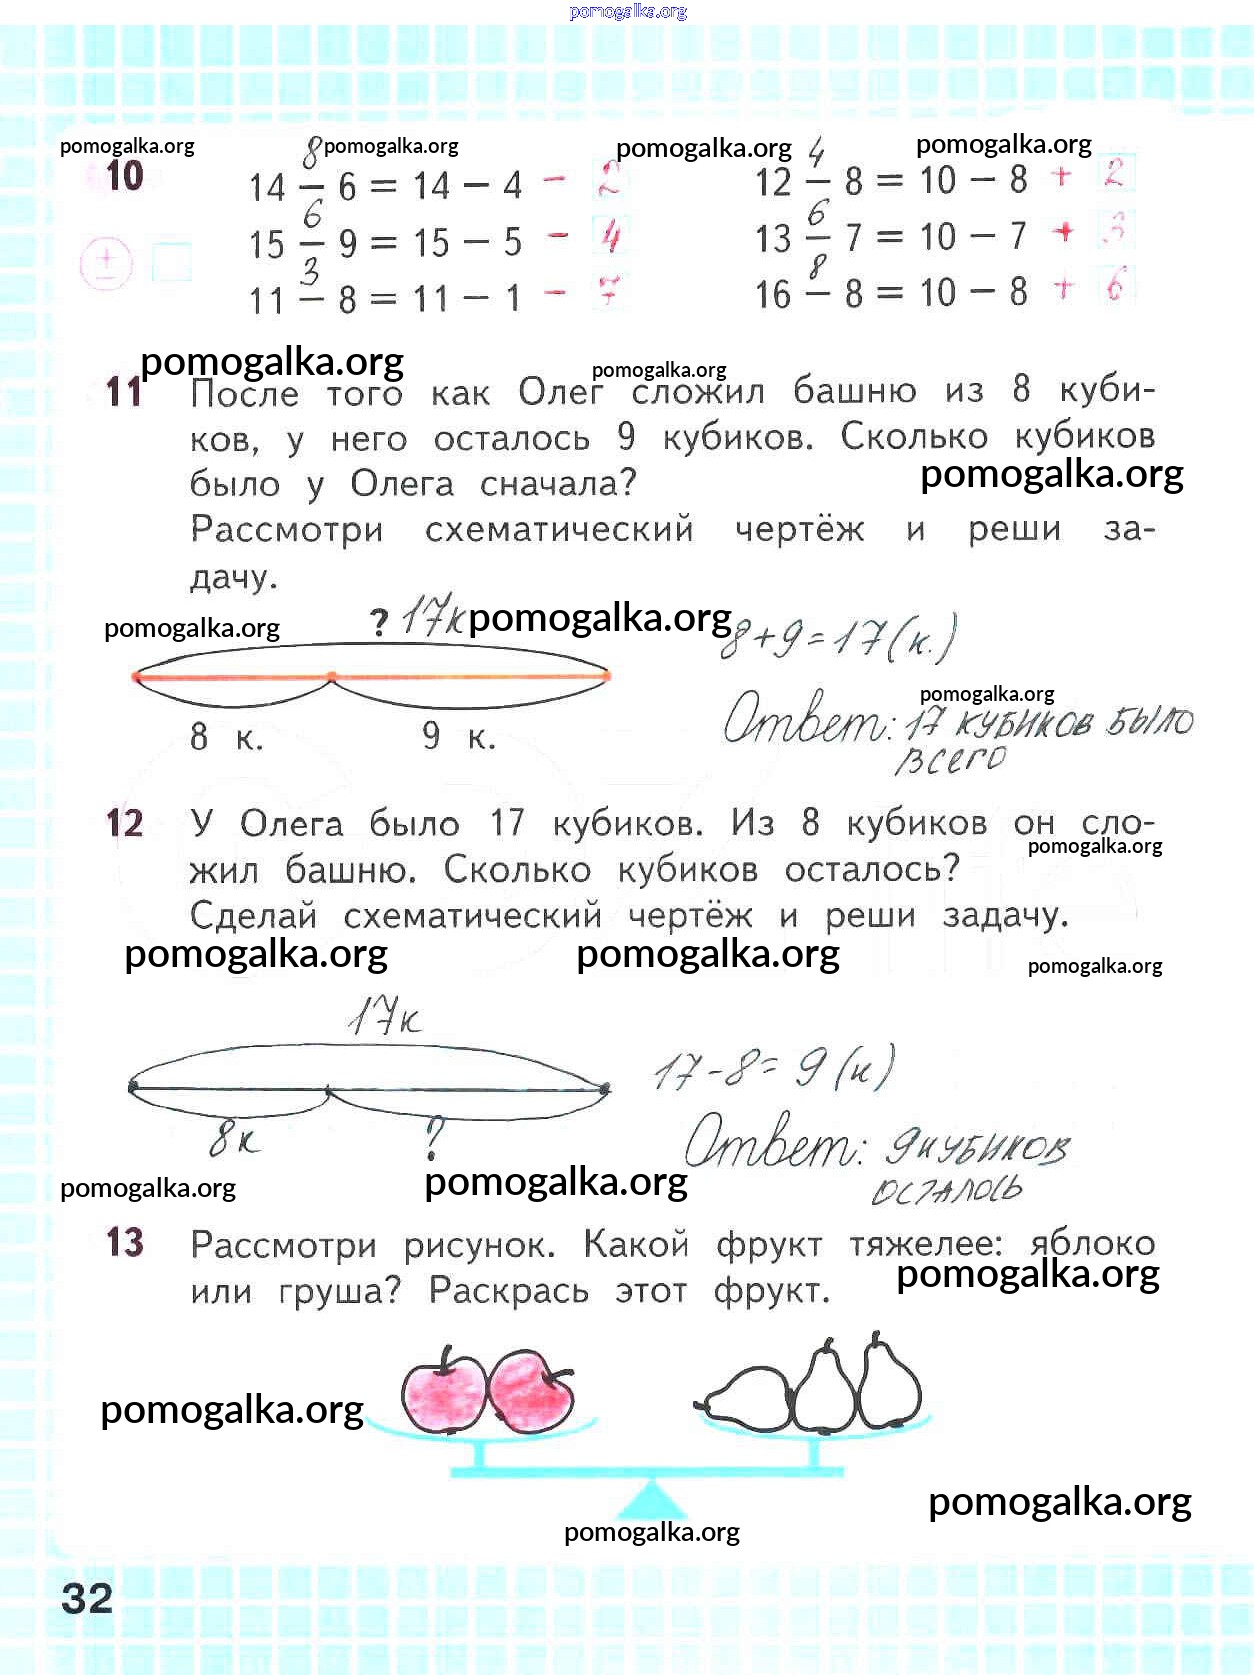 pomogalka.org
pomogalka.org pomogalka.org pomogalka.org pomogalka.org
10
8 4
14 − 6 = 14 − 4 − 2 12 − 8 = 10 − 8 + 2
6 6
15 − 9 = 15 − 5 − 4 13 − 7 = 10 − 7 + 3
3 8
11 − 8 = 11 − 1 − 7 16 − 8 = 10 − 8 + 6
pomogalka.org pomogalka.org
11 После того как Олег сложил башню из 8 куби-
ков, у него осталось 9 кубиков. Сколько кубиков
pomogalka.org
было у Олега сначала?
Рассмотри схематический чертёж и реши за-
дачу.
pomogalka.org ? 17к pomogalka.org
8+9=17(к.)
pomogalka.org
8 к. 9 к.
Ответ: 17 кубиков было
всего
12 У Олега было 17 кубиков. Из 8 кубиков он сло-
pomogalka.org
жил башню. Сколько кубиков осталось?
Сделай схематический чертёж и реши задачу.
pomogalka.org pomogalka.org pomogalka.org
17к
17-8=9(к)
8к ?
Ответ: 9 кубиков
осталось
pomogalka.org pomogalka.org
13 Рассмотри рисунок. Какой фрукт тяжелее: яблоко
pomogalka.org
или груша? Раскрась этот фрукт.
pomogalka.org
pomogalka.org
pomogalka.org
32